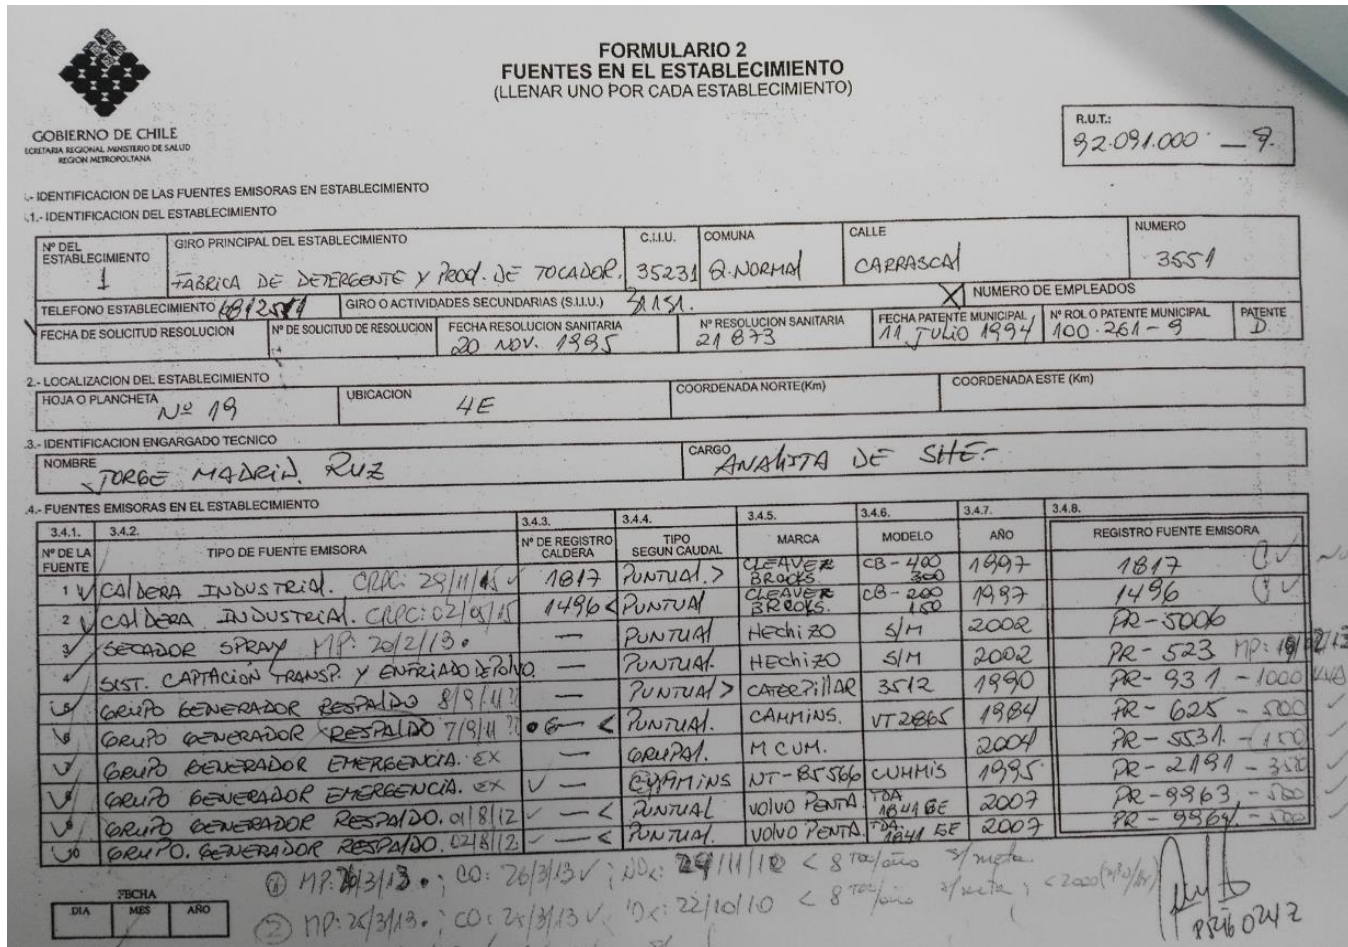 FORMULARIO 2
FUENTES EN EL ESTABLECIMIENTO
(LLENAR UNO POR CADA ESTABLECIMIENTO)
GOBIERNO DE CHILE
SECRETARIA REGIONAL MINISTERIO DE SALUD
REGION METROPOLITANA
R.U.T.:
92.091.000 - 9.
.- IDENTIFICACION DE LAS FUENTES EMISORAS EN ESTABLECIMIENTO
.1.- IDENTIFICACION DEL ESTABLECIMIENTO
Nº DEL ESTABLECIMIENTO 1 GIRO PRINCIPAL DEL ESTABLECIMIENTO FABRICA DE DETERGENTE Y PROD. DE TOCADOR. C.I.I.U. 35231 COMUNA Q. NORMAL CALLE CARRASCAL NUMERO 3551
TELEFONO ESTABLECIMIENTO GIRO O ACTIVIDADES SECUNDARIAS (S.I.I.U.) NUMERO DE EMPLEADOS
FECHA DE SOLICITUD RESOLUCION Nº DE SOLICITUD DE RESOLUCION FECHA RESOLUCION SANITARIA 20 NOV. 1995 Nº RESOLUCION SANITARIA 21873 FECHA PATENTE MUNICIPAL 11 JULIO 1994 Nº ROL O PATENTE MUNICIPAL 100.261-9 PATENTE D.
2.- LOCALIZACION DEL ESTABLECIMIENTO
HOJA O PLANCHETA Nº 19 UBICACION 4E COORDENADA NORTE(Km) COORDENADA ESTE (Km)
.3.- IDENTIFICACION ENGARGADO TECNICO
NOMBRE JORGE MADRID RUZ CARGO ANALISTA DE SHE.-
.4.- FUENTES EMISORAS EN EL ESTABLECIMIENTO
3.4.1. 3.4.2. 3.4.3. 3.4.4. 3.4.5. 3.4.6. 3.4.7. 3.4.8.
Nº DE LA FUENTE TIPO DE FUENTE EMISORA Nº DE REGISTRO CALDERA TIPO SEGUN CAUDAL MARCA MODELO AÑO REGISTRO FUENTE EMISORA
1 CALDERA INDUSTRIAL. CRPC: 29/11/15 1817 PUNTUAL > CLEAVER BROOKS. CB-400 300 1997 1817
2 CALDERA INDUSTRIAL. CRPC: 02/05/15 1496 < PUNTUAL CLEAVER BROOKS. CB-200 150 1997 1496
3 SECADOR SPRAY MP: 20/2/13. — PUNTUAL HECHIZO S/M 2002 PR-5006
4 SIST. CAPTACION TRANSP. Y ENFRIADO DE POLVO. — PUNTUAL. HECHIZO S/M 2002 PR-523
5 GRUPO GENERADOR RESPALDO 8/9/11 — PUNTUAL > CATERPILLAR 3512 1990 PR-931 - 1000
6 GRUPO GENERADOR RESPALDO 7/9/11 < PUNTUAL. CAMMINS. VT2865 1984 PR-625 - 500
7 GRUPO GENERADOR EMERGENCIA. EX — GRUPAL. M CUM. 2004 PR-5531. - 150
8 GRUPO GENERADOR EMERGENCIA. EX — CUMMINS NT-B5566 CUMMIS 1995 PR-2191 - 350
9 GRUPO GENERADOR RESPALDO. 01/8/12 — < PUNTUAL VOLVO PENTA TDA 1841 GE 2007 PR-9963 - 500
10 GRUPO. GENERADOR RESPALDO. 02/8/12 — < PUNTUAL. VOLVO PENTA. TDA 1841 GE 2007 PR-9964 - 500
① MP: 26/3/13. ; CO: 26/3/13 ; NOx: 29/11/10 < 8 ton/año s/meta.
② MP: 25/3/13. ; CO: 25/3/13 ; NOx: 22/10/10 < 8 ton/año s/meta ;
FECHA
DIA MES AÑO